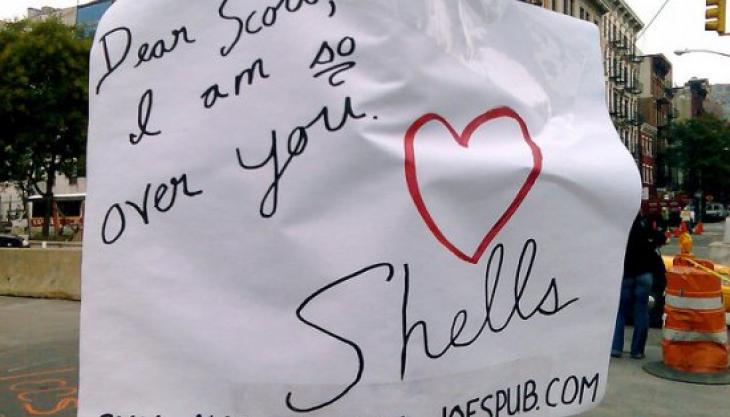 Dear
I am so
over you.
Shells
JOESPUB.COM